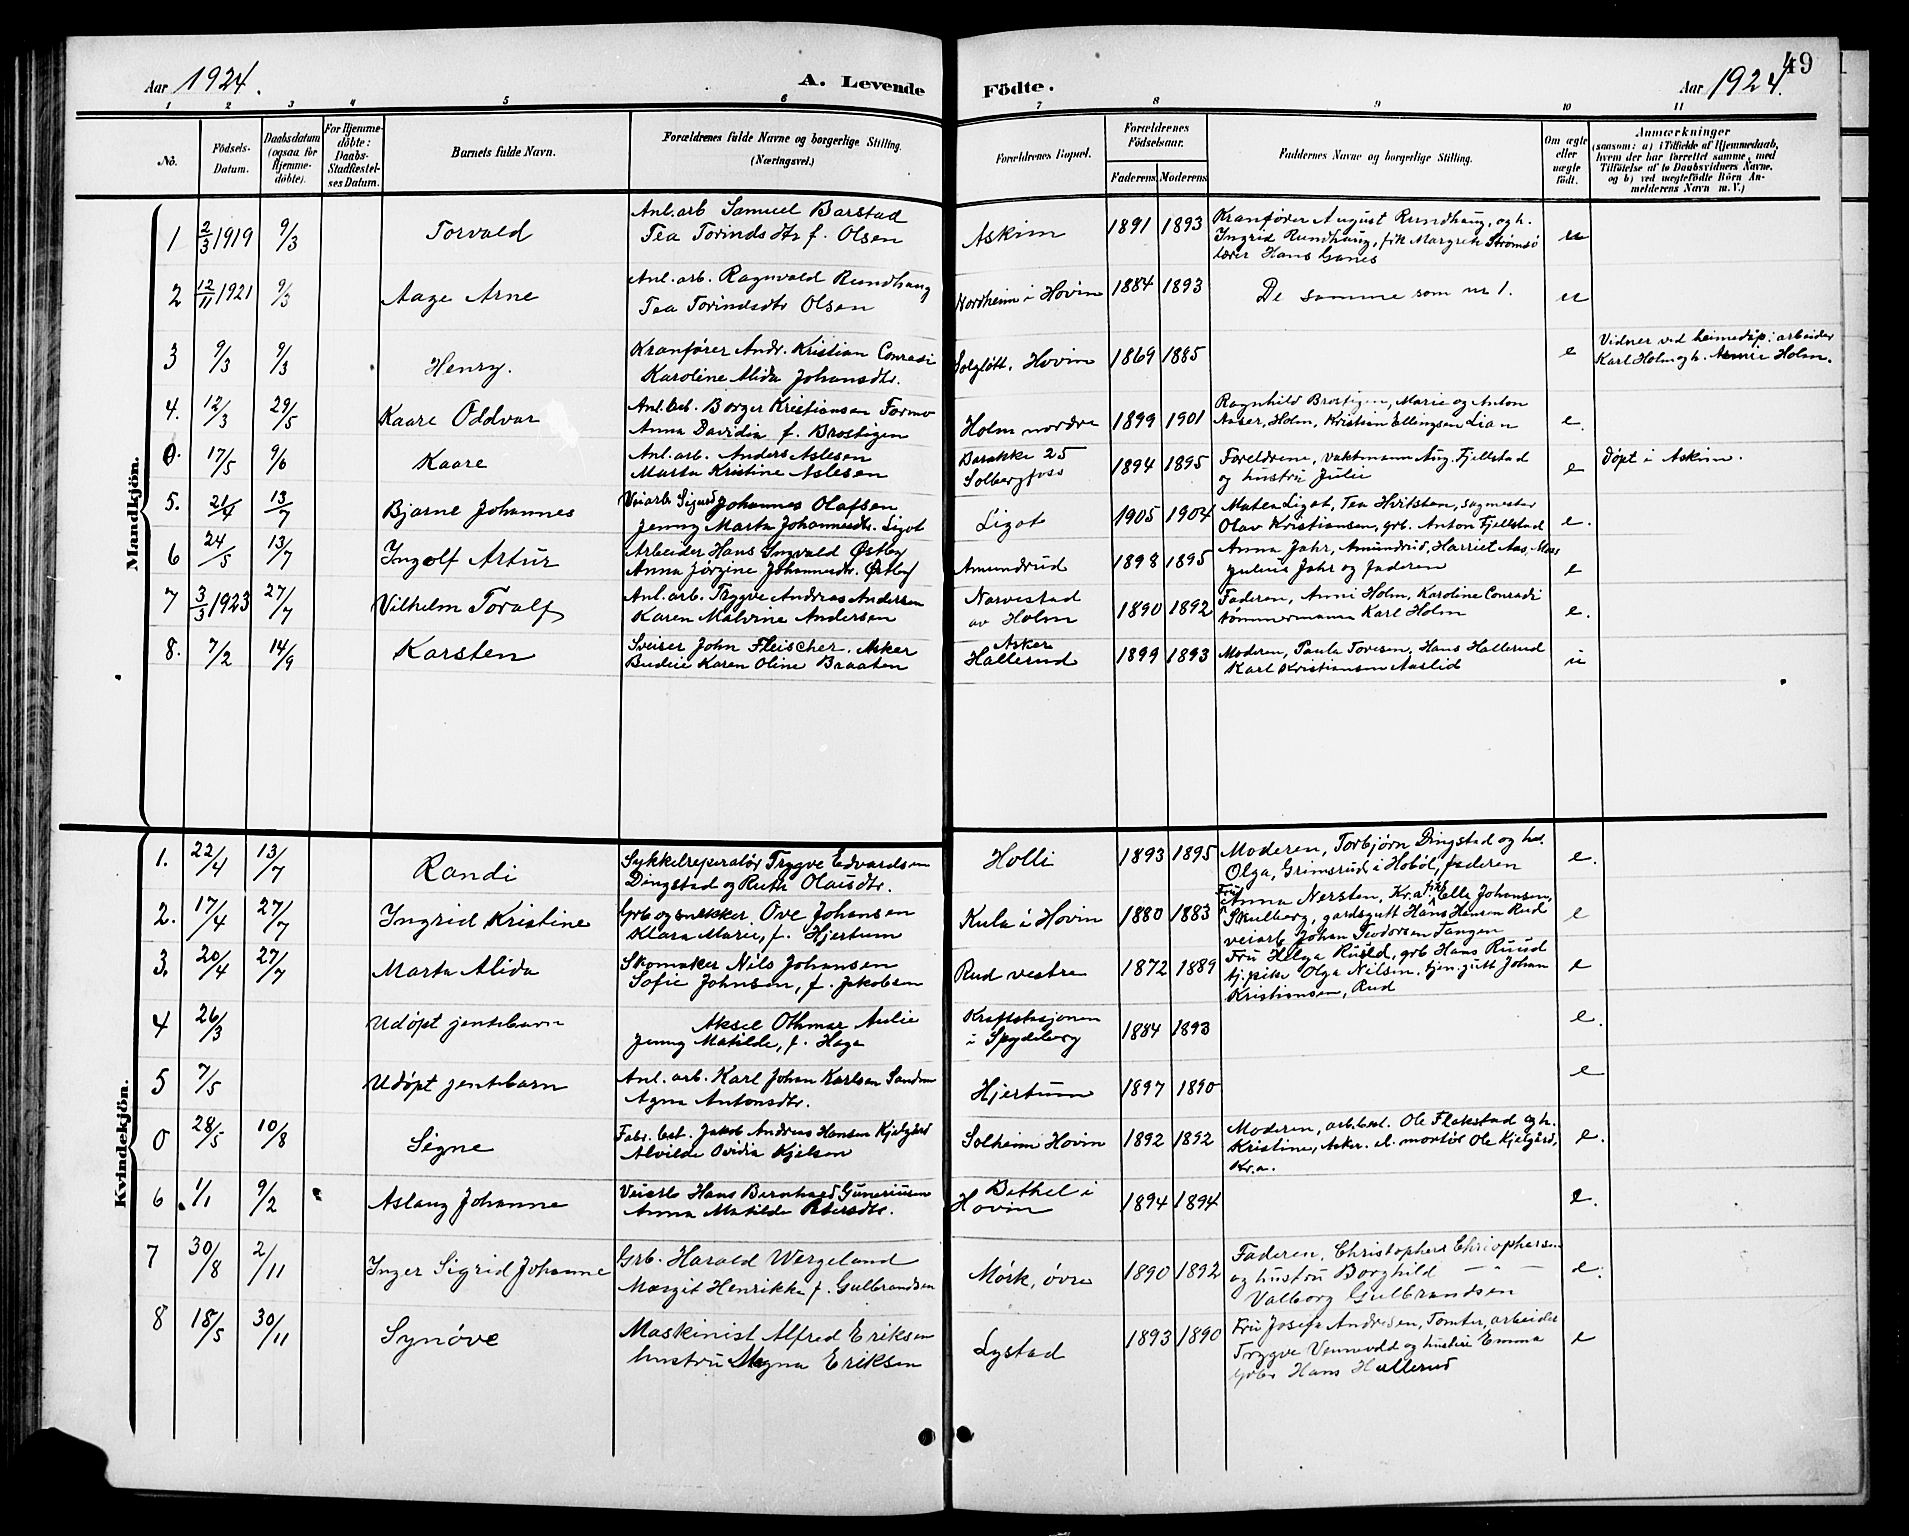 49
Aar 1924. A. Levende Födte. Aar 1924.
1 2 3 4 5 6 7 8 9 10 11
No. Födsels-Datum. Daabsdatum (ogsaa for Hjemme-döbte). For Hjemme-döbte: Daabs-Stadfæstel-ses Datum. Barnets fulde Navn. Forældrenes fulde Navne og borgerlige Stilling. (Næringsvei.) Forældrenes Bopæl. Forældrenes Födselsaar. Faderens Moderens Faddernes Navne og borgerlige Stilling. Om ægte eller uægte födt. Anmærkninger (saasom: a) i Tilfælde af Hjemmedaab, hvem der har forrettet samme, med Tilföielse af to Daabsvidners Navne, og b) ved uægtefödte Börn An-melderens Navn m. V.)
Mandkjön.
1 2/3 1919 9/3 Torvald Anl.arb Samuel Barstad
Tea Torindsdtr f. Olsen Askim 1891 1893 Kranfører August Rundhaug, og h.
Ingrid Rundhaug, frk Margrete Strømsø
lærer Hans Ganes u
2 12/11 1921 9/3 Aage Arne Anl.arb. Ragnvald Rundhaug
Tea Torindsdtr Olsen Nordheim i Hovin 1884 1893 De samme som nr 1. u
3 9/3 9/3 Henry. Kranfører Andr. Kristian Conradi
Karoline Alida Johansdtr. Solgløtt, Hovin 1869 1885 e Vidner ved heimedøp: arbeider
Karl Holm og h. Annie Holm.
4. 12/3 29/5 Kaare Oddvar Anl.arb. Borger Kristiansen Formo
Anna Davidia f. Brostigen Holm nordre 1899 1901 Ragnhild Brostigen, Marie og Anton
Aaser, Holm, Kristian Ellingsen Lian e.
0. 17/5 9/6 Kaare Anl.arb. Anders Aslesen
Marta Kristine Aslesen Barakke 25
Solbergfoss 1894 1895 Foreldrene, vaktmann Aug. Fjellstad
og hustru Julie e døpt i Askim.
5. 21/4 13/7 Bjarne Johannes Veiarb Sigurd Johannes Olafsen
Jenny Marta Johannesdtr. Ligot Ligot 1905 1904 Maten Ligot, Tea Hvitsten, sagmester
Olav Kristiansen, grb. Anton Fjellstad e.
6 24/5 13/7 Ingolf Artur Arbeider Hans Ingvald Østby
Anna Jørgine Johannesdtr. Østby Amundrud 1898 1895 Anna Jahr, Amundrud, Harriet Aas, Moss
Julius Jahr og faderen e
7 3/3 1923 27/7 Vilhelm Toralf Anl.arb. Trygve Andreas Andersen
Karen Malvine Andersen Narvestad
av Holm 1890 1892 Faderen, Anni Holm, Karoline Conradi
tømmermann Karl Holm e.
8. 7/2 14/9 Karsten Sveiser John Fleischer, Asker
Budeie Karen Oline Braaten Asker
Hallerud 1899 1893 Moderen, Paula Toresen, Hans Hallerud
Karl Kristiansen Aaslid u
Kvindekjön.
1. 22/4 13/7 Randi Sykkelreperatør Trygve Edvardsen
Dingstad og Ruth Olausdtr. Holli 1893 1895 Moderen, Torbjørn Dingstad og hu.
Olga, Grimsrud i Hobøl, faderen e.
2. 17/4 27/7 Ingrid Kristine Grb og snekker Ove Johansen
Klara Marie, f. Hjertum Kula i Hovin 1880 1883 Fru Anna Nersten, Kr.a, frk Ella Johansen,
Skulberg, gardsgutt Hans Hansen Rud
veiarb Johan Teodorsen Tangen e
3. 20/4 27/7 Marta Alida Skomaker Nils Johansen
Sofie Johnsen, f. Jakobsen Rud vestre 1872 1889 Fru Helga Ruud, grb Hans Ruud
tj.pike Olga Nilsen, tjen.gutt Johan
Kristiansen, Rud e
4 26/3 Udøpt jentebarn Aksel Othmar Aulie
Jenny Matilde, f. Haga Kraftstasjonen
i Spydeberg 1884 1893 e.
5 7/5 Udøpt jentebarn Anl.arb. Karl Johan Karlsen Sandmo
Agna Antonsdtr. Hjertum 1897 1890 e
0 28/5 10/8 Signe Fabr.best. Jakob Andreas Hansen Kjelgård
Alvilde Ovidia Kjelson Solheim Hovin 1892 1892 Moderen, arb.best. Ole Flakstad og h.
Kristine, Asker. el. montør Ole Kjelgård,
Kr.a. e.
6 1/1 9/2 Aslaug Johanne Veiarb Hans Bernhard Guneriusen
Anna Matilde Petersdtr. Bethel i
Hovin 1894 1894 e.
7 30/8 2/11 Inger Sigrid Johanne Grb. Harald Wergeland
Margit Henrikke f. Gulbrandsen Mørk, øvre 1890 1892 Faderen, Christopher Chriophersen
og hustru Borghild — " —
Valborg Gulbrandsen e.
8 18/5 30/11 Synøve Maskinist Alfred Eriksen
hustru Magna Eriksen Lystad 1893 1890 Fru Josefa Andresen, Tomter, arbeider
Trygve Vennevold og hustru Emma
Grbr Hans Hallerud e